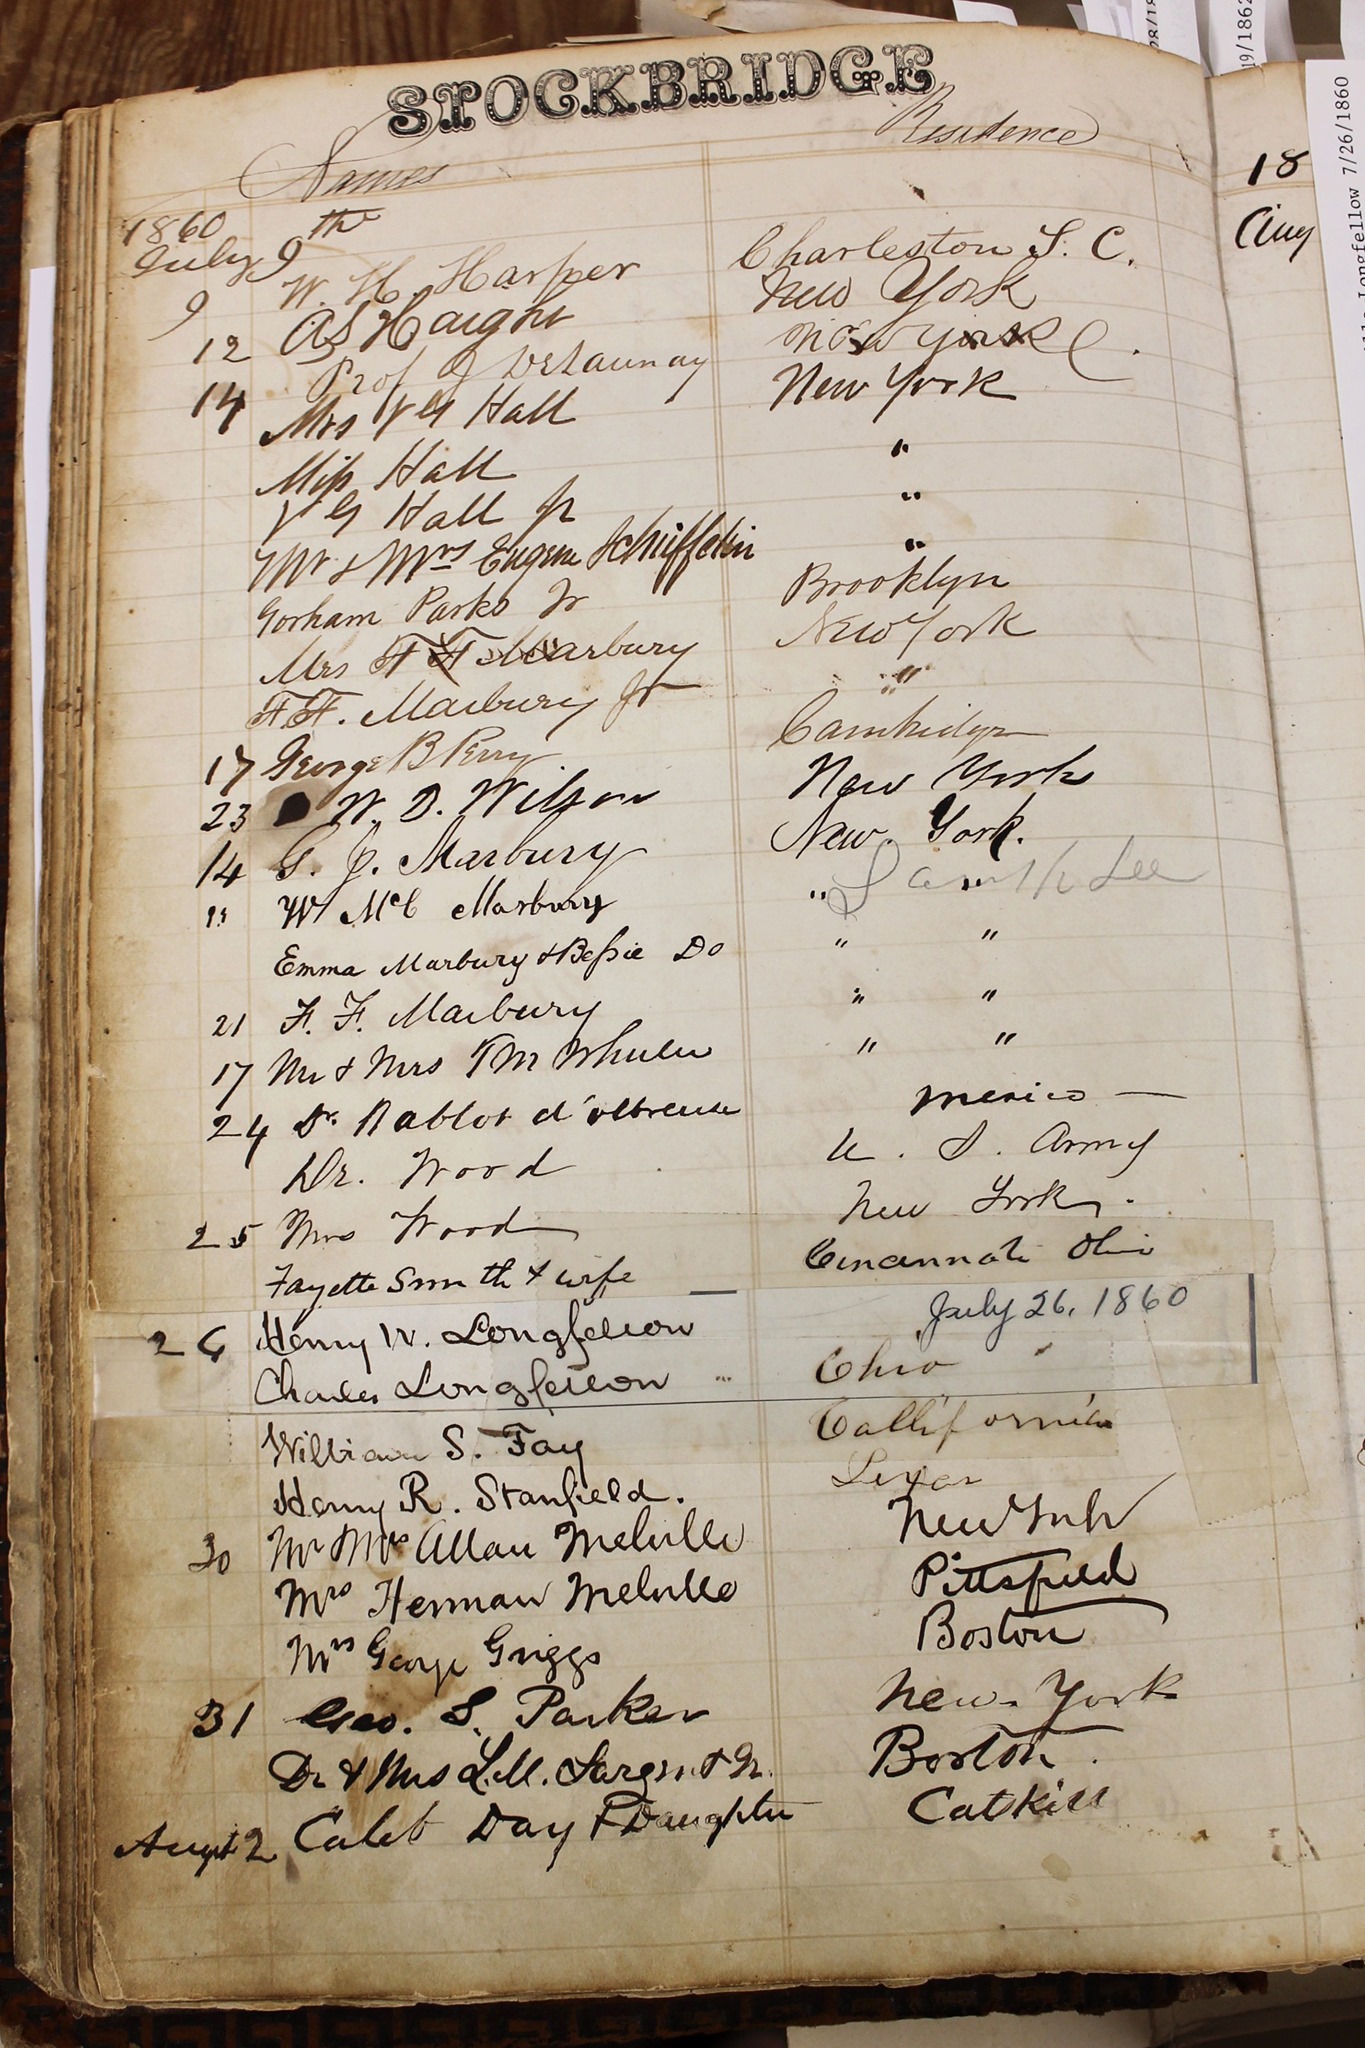 STOCKBRIDGE
Names Residence
1860
July 9th
9 W. H. Harper Charleston S. C.
12 Haight New York
14 Prof J Delaunay New York
Mrs V G Hall New York
Miss Hall "
V G Hall Jr "
Mr & Mrs Eugene Schieffelin "
Gorham Parks Jr Brooklyn
Mrs F F Marbury New York
F. F. Marbury Jr "
17 George B Perry Cambridge
23 W. D. Wilson New York
14 G. J. Marbury New York.
" W McC Marbury " " South Lee
Emma Marbury & Bessie Do " "
21 F. F. Marbury " "
17 Mr & Mrs T M Wheeler " "
24 Dr. Mexico —
Dr. Wood U. S. Army
25 Mrs Wood New York.
Fayette Smith & wife — Cincinnati Ohio
26 Henry W. Longfellow July 26, 1860
Charles Longfellow " Ohio
William S. Fay California
Henry R. Stanfield.
30 Mr Mrs Allan Melville New York
Mrs Herman Melville Pittsfield
Mrs George Griggs Boston
31 Geo. S. Parker New York
Dr & Mrs L. M. Sargent Jr. Boston.
Augt 2 Caleb Day & Daughter Catskill
18
Aug
Longfellow 7/26/1860
19/1862